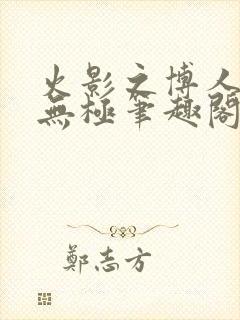 火影之博人
無極筆趣閣
鄭志方